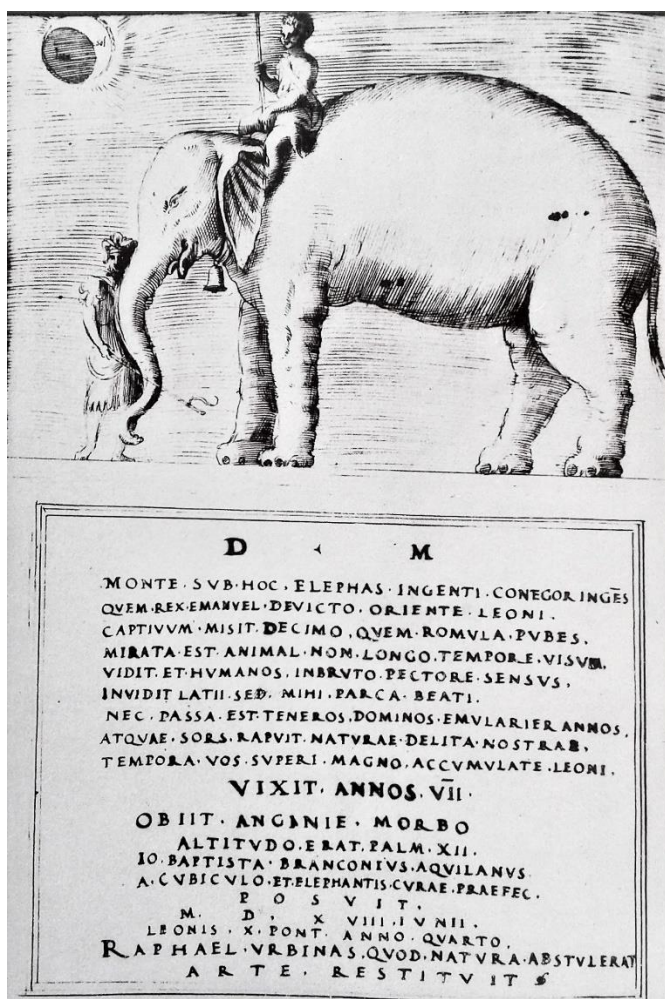 sol
D M
MONTE · SVB · HOC , ELEPHAS · INGENTI · CONEGOR INGĒS
QVEM · REX · EMANVEL · DEVICTO . ORIENTE . LEONI .
CAPTIVVM · MISIT . DECIMO , QVEM · ROMVLA · PVBES ,
MIRATA · EST · ANIMAL · NON · LONGO . TEMPORE . VISVM ,
VIDIT . ET · HVMANOS , INBRVTO . PECTORE · SENSVS ,
INVIDIT LATII · SED . MIHI . PARCA · BEATI .
NEC . PASSA · EST · TENEROS , DOMINOS . EMVLARIER ANNOS ,
ATQVAE . SORS . RAPVIT . NATVRAE · DELITA · NOSTRAE ,
TEMPORA · VOS · SVPERI . MAGNO , ACCVMVLATE . LEONI .
VIXIT . ANNOS . V̅I̅I ·
OBIIT . ANGINIE . MORBO
ALTITVDO . ERAT . PALM . XII .
IO . BAPTISTA · BRANCONIVS . AQVILANVS
A . CVBICVLO . ET . ELEPHANTIS . CVRAE . PRAEFEC .
P O S V I T ,
M . D . X VIII . IVNII .
LEONIS . X . PONT . ANNO . QVARTO ,
RAPHAEL . VRBINAS , QVOD , NATVRA · ABSTVLERAT
ARTE . RESTITVIT